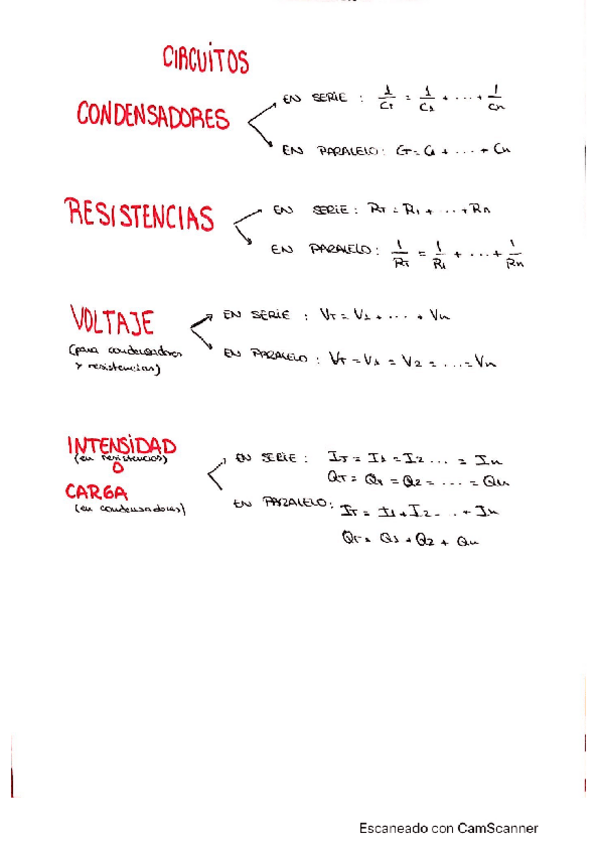 CIRCUITOS
CONDENSADORES
EN SERIE : 1/CT = 1/C1 + ... + 1/Cn
EN PARALELO: CT = C1 + ... + Cn
RESISTENCIAS
EN SERIE : RT = R1 + ... + Rn
EN PARALELO : 1/RT = 1/R1 + ... + 1/Rn
VOLTAJE
(para condensadores
y resistencias)
EN SERIE : VT = V1 + ... + Vn
EN PARALELO : VT = V1 = V2 = ... = Vn
INTENSIDAD
(en resistencias)
O
CARGA
(en condensadores)
EN SERIE : IT = I1 = I2 ... = In
QT = Q1 = Q2 = ... = Qn
EN PARALELO: IT = I1 + I2 - .. + In
QT = Q1 + Q2 + Qn
Escaneado con CamScanner